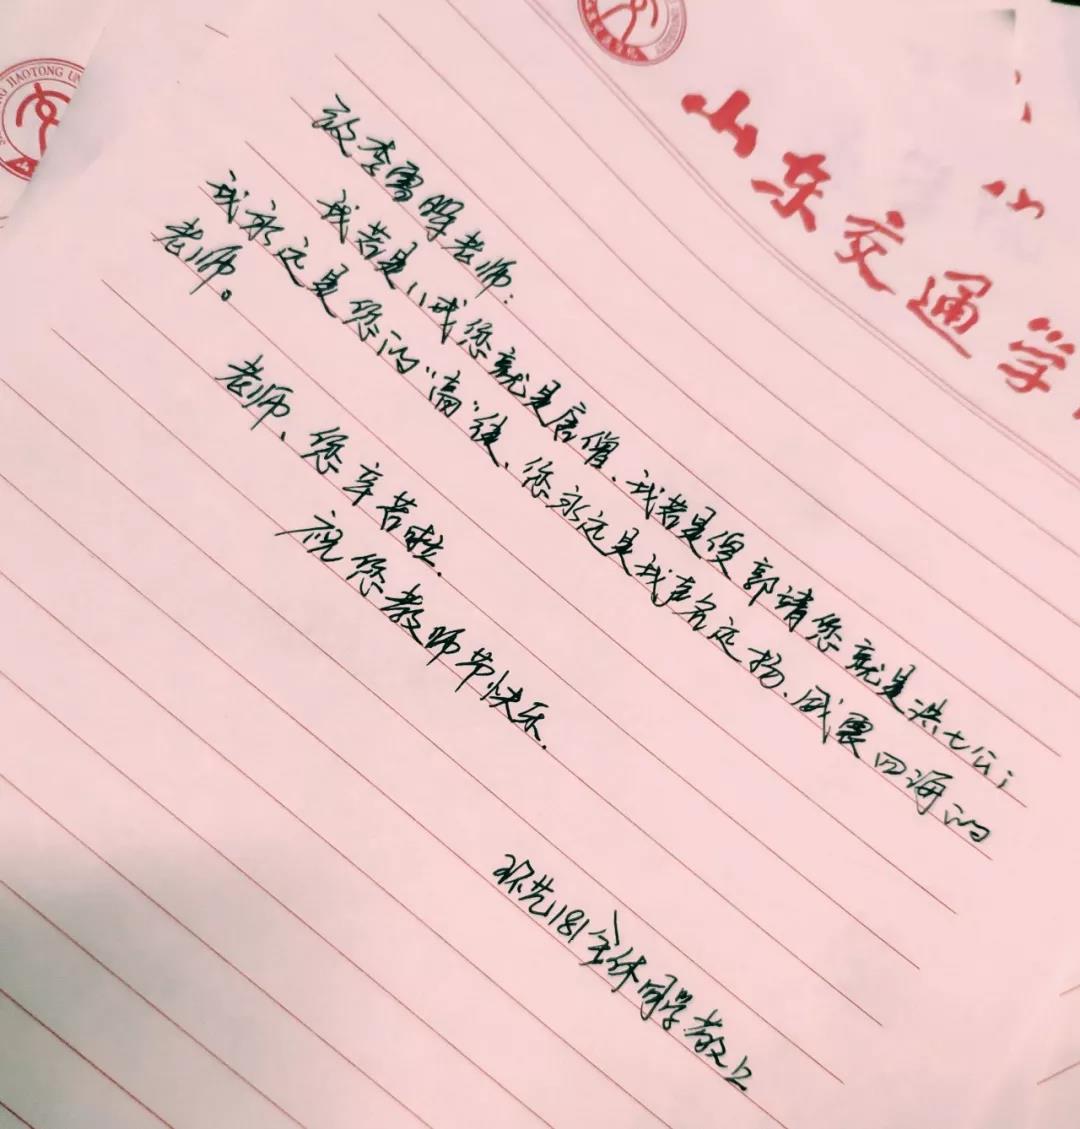 JIAOTONG UN
山东交通学
致李雪婷老师:
我若是八戒您就是唐僧、我若是傻郭靖您就是洪七公;
我永远是您的“高”徒、您永远是我声名远扬、威震四海的
老师。
老师、您辛苦啦.
祝您教师节快乐.
环艺181全体同学敬上